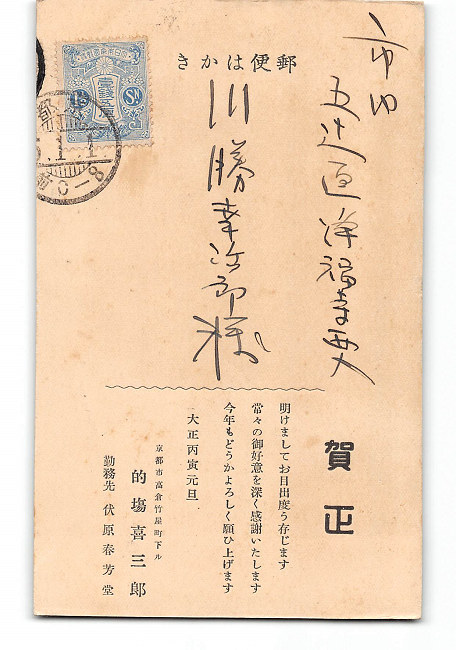 郵便はかき
市内
五辻通浄福寺西入
川勝幸治郎様
賀正
明けましてお目出度う存じます
常々の御好意を深く感謝いたします
今年もどうかよろしく願ひ上げます
大正丙寅元旦
京都市高倉竹屋町下ル
的塲喜三郎
勤務先 伏原春芳堂
都
.1.1
8